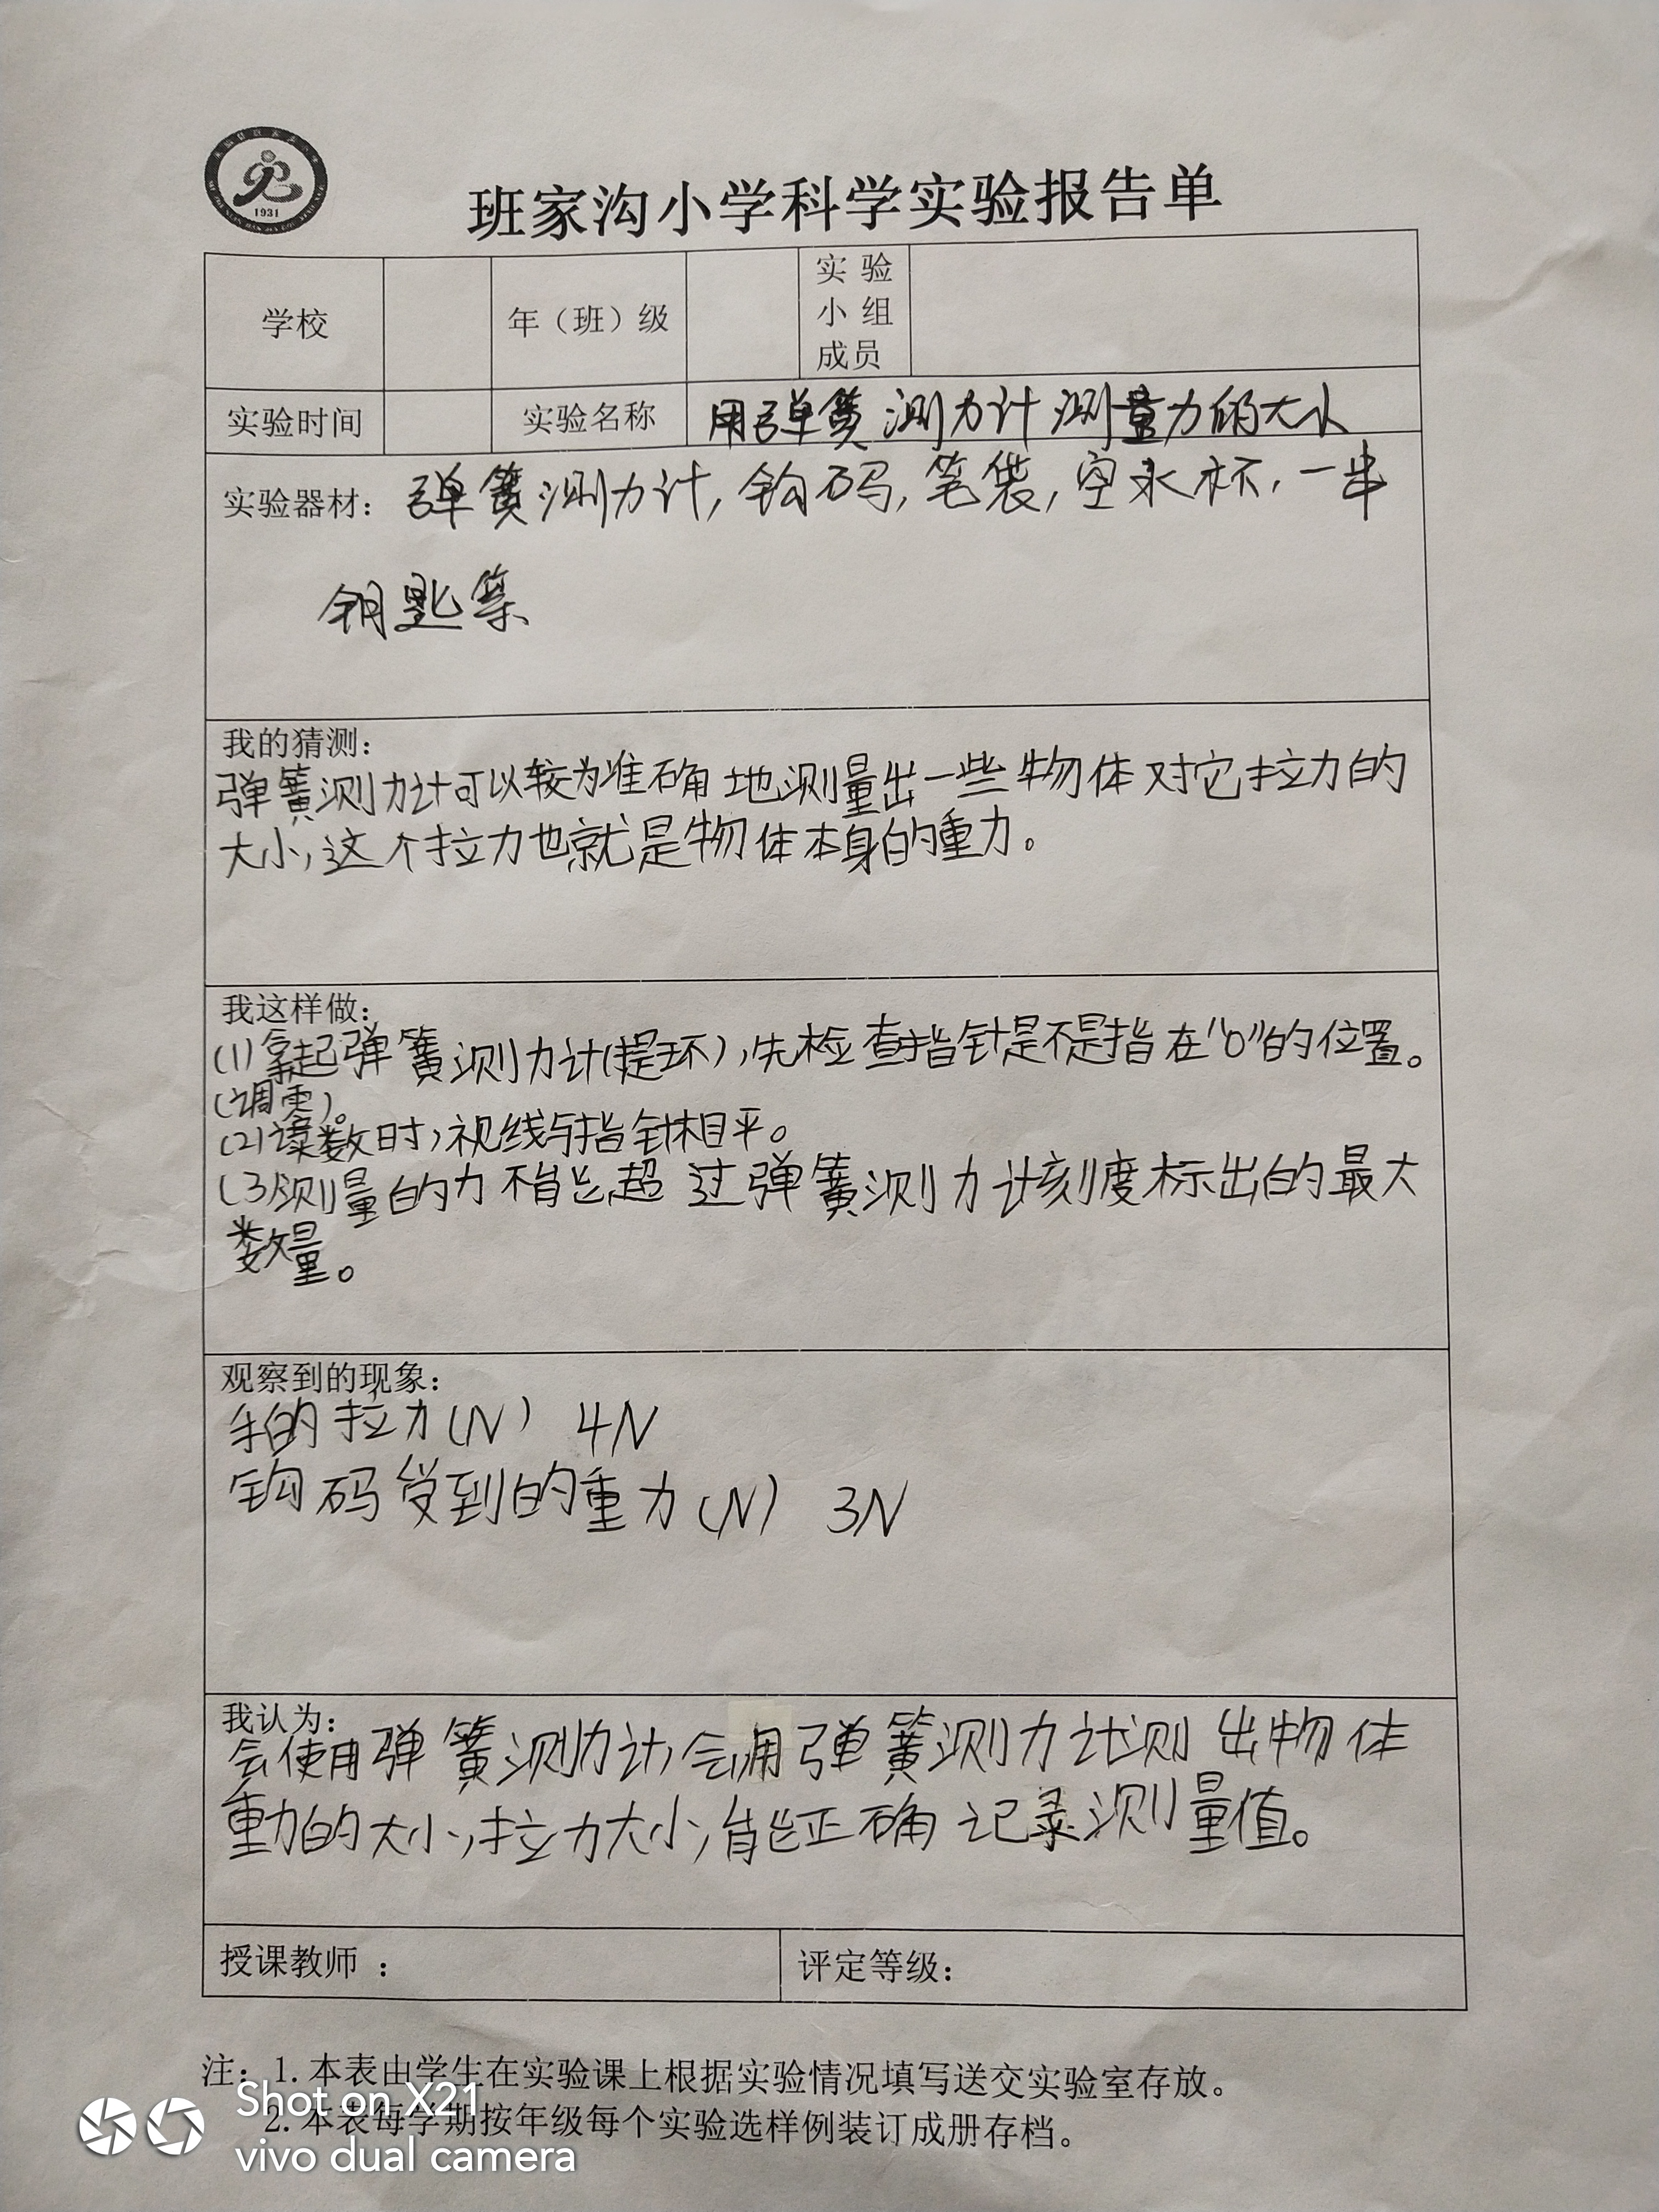 1931
班家沟小学科学实验报告单
学校
年（班）级
实验
小组
成员
实验时间
实验名称
用弹簧测力计测量力的大小
实验器材：弹簧测力计，钩码，笔袋，空水杯，一串
钥匙等
我的猜测：
弹簧测力计可以较为准确地测量出一些物体对它拉力的
大小，这个拉力也就是物体本身的重力。
我这样做：
(1)拿起弹簧测力计(提环)，先检查指针是不是指在"0"的位置。
(调零)。
(2)读数时，视线与指针相平。
(3)测量的力不能超过弹簧测力计刻度标出的最大
数量。
观察到的现象：
手的拉力(N) 4N
钩码受到的重力(N) 3N
我认为：
会使用弹簧测力计，会用弹簧测力计测出物体
重力的大小，拉力大小，能正确记录测量值。
授课教师：
评定等级：
注：1.本表由学生在实验课上根据实验情况填写送交实验室存放。
2.本表每学期按年级每个实验选样例装订成册存档。
Shot on X21
vivo dual camera